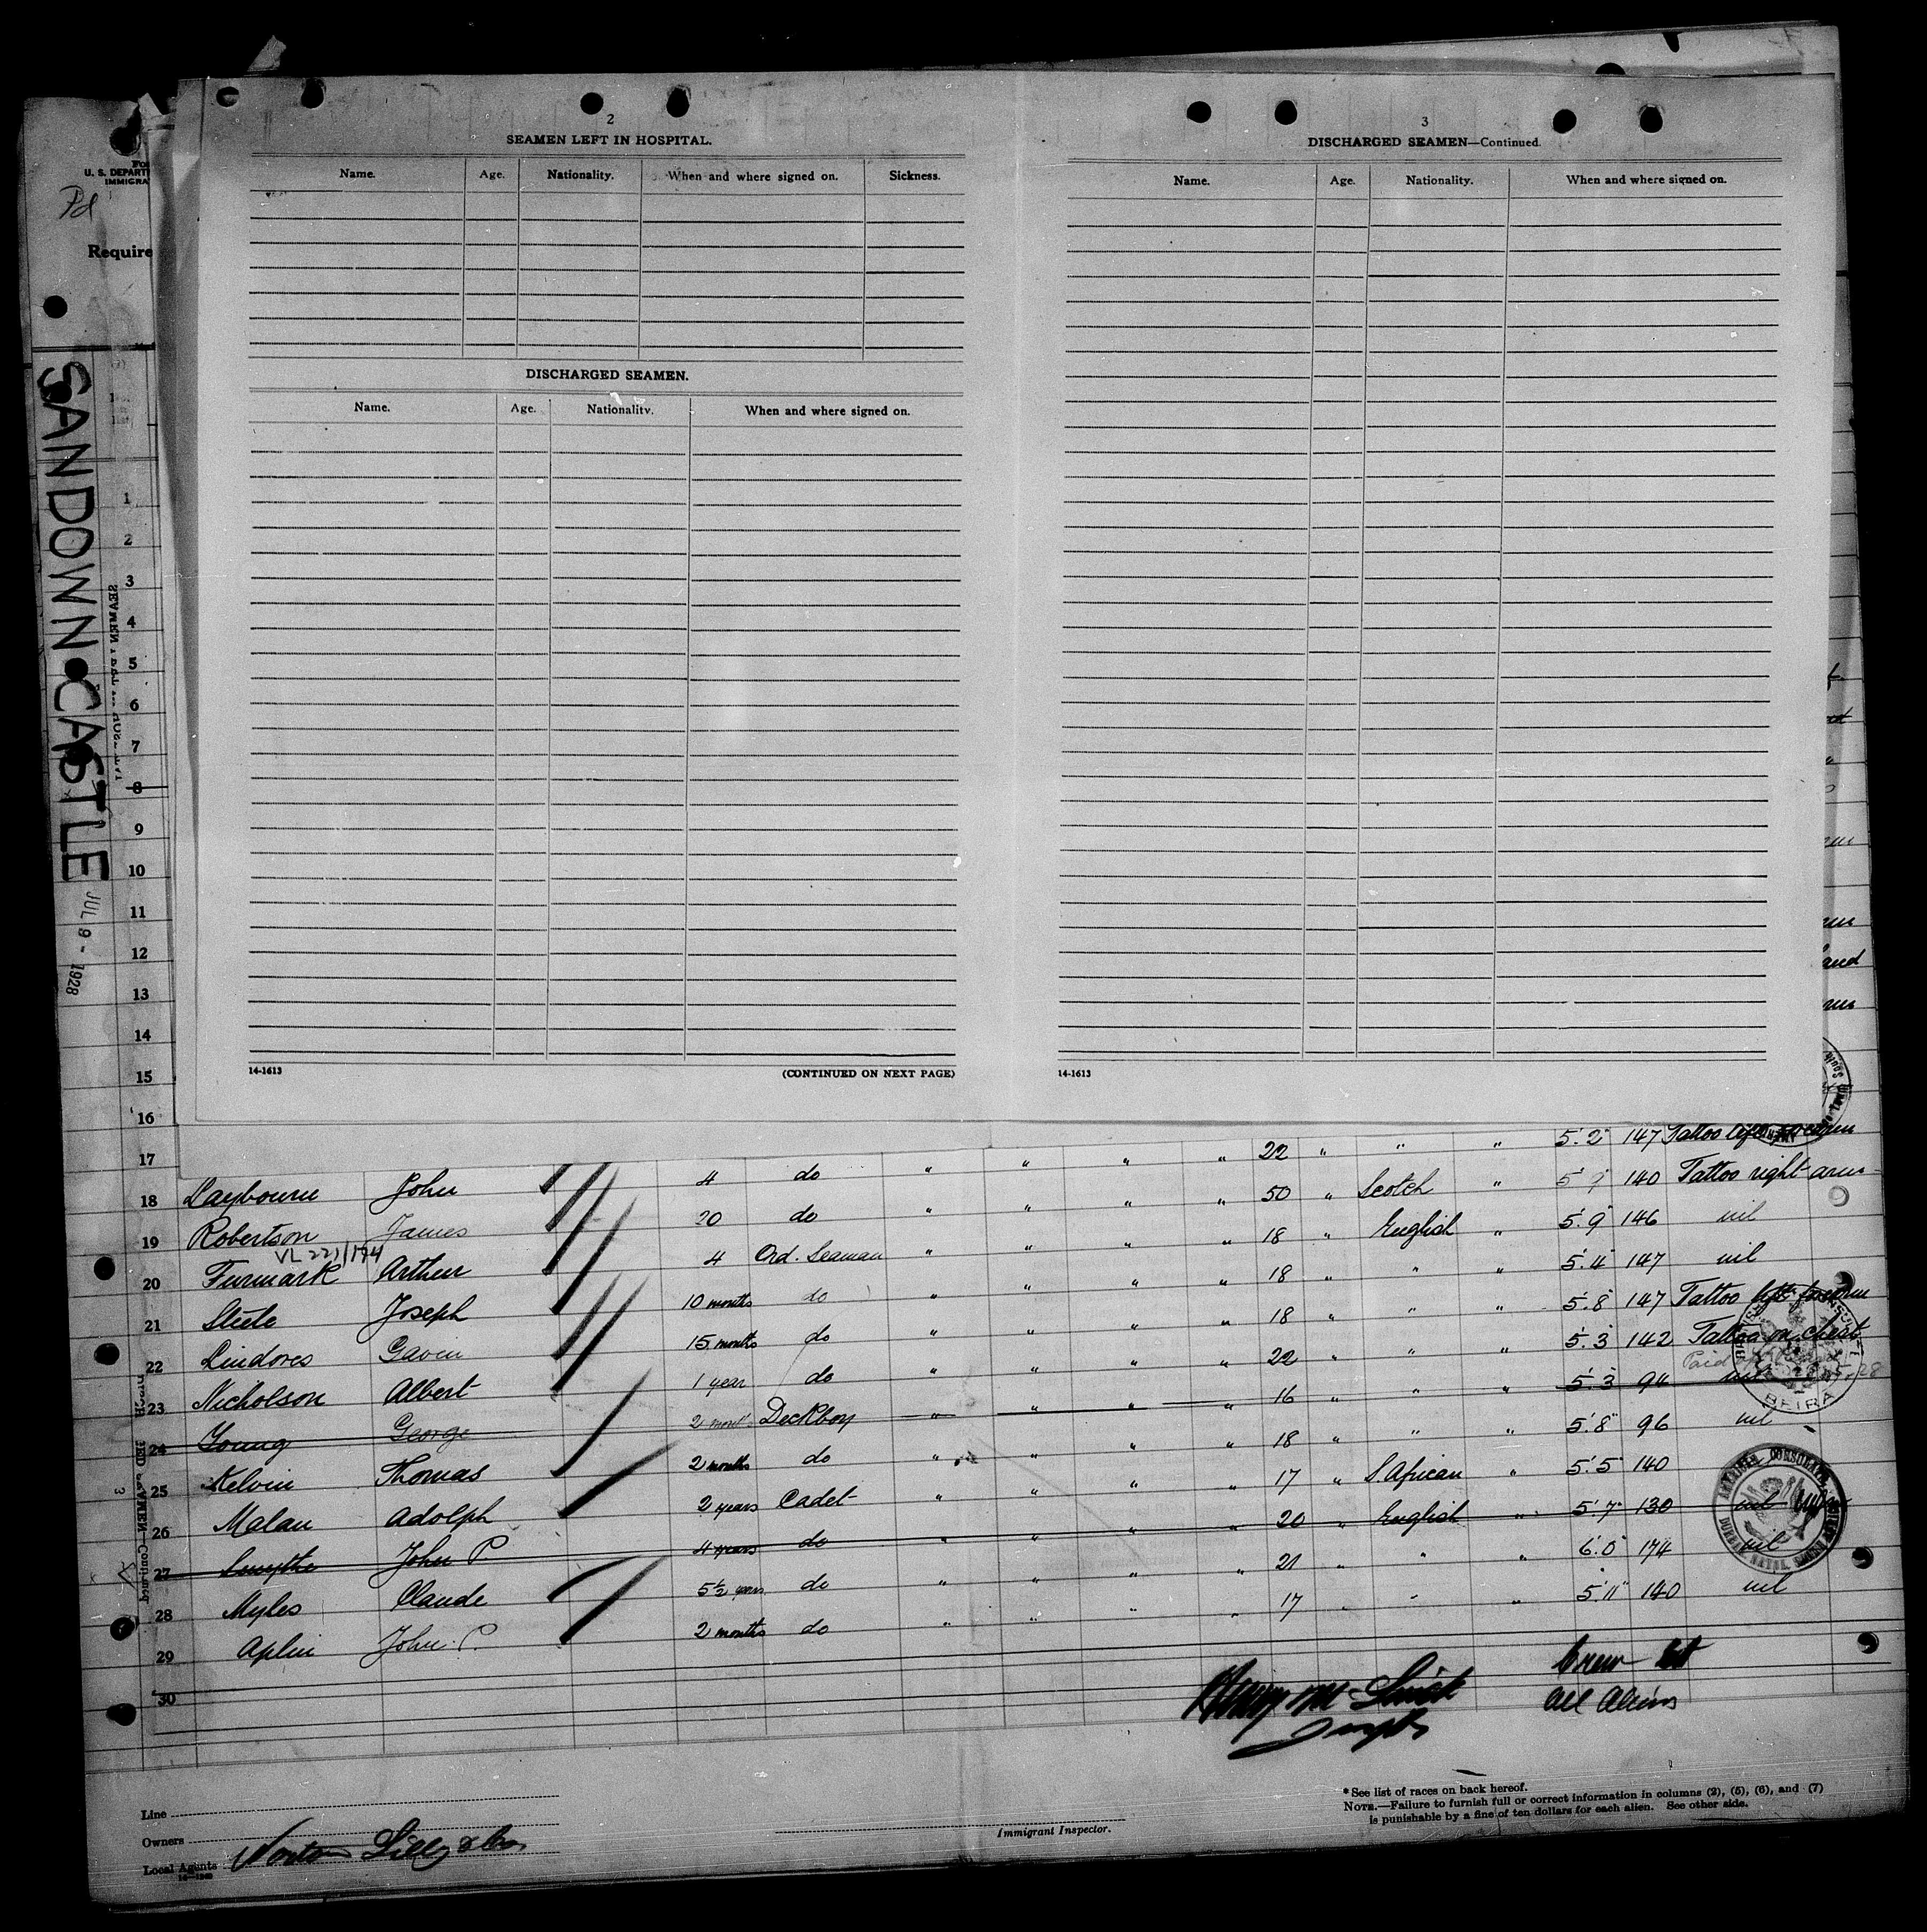 2
SEAMEN LEFT IN HOSPITAL.
Name. Age. Nationality. When and where signed on. Sickness.
DISCHARGED SEAMEN.
Name. Age. Nationality. When and where signed on.
14-1613 (CONTINUED ON NEXT PAGE)
3
DISCHARGED SEAMEN—Continued.
Name. Age. Nationality. When and where signed on.
14-1613
U. S. DEPART
IMMIGRA
Pd
Require
SANDOWN CASTLE
JUL 9 - 1928
1
2
3
4
5
6
7
8
9
10
11
12
13
14
15
16
17
18 Laybourn John 4 do " " " " 22 " " " 5'.2" 147 Tattoo left forearm
19 Robertson James 20 do " " " " 50 " Scotch " 5' 140 Tattoo right arm
VL 221/174
20 Furmark Arthur 4 Ord. Seaman " " " " 18 " English " 5'.9" 146 nil
21 Steele Joseph 10 months do " " " " 18 " " " 5'.4" 147 nil
22 Lindores Gavin 15 months do " " " " 18 " " " 5'.8" 147 Tattoo left forearm
23 Nicholson Albert 1 year do " " " " 22 " " " 5'.3" 142 Tattoo on chest
24 Young George 2 mont Deckboy " " " " 16 " " " 5'.3" 94 nil
Paid
28
25 Kelvin Thomas 2 months do " " " " 18 " " " 5'.8" 96 nil
26 Malan Adolph 2 years Cadet " " " " 17 " S African " 5'.5" 140
27 Smythe John P 4 years do " " " " 20 " English " 5'.7" 130 nil
28 Myles Claude 5½ years do " " " " 21 " " " 6'.0" 174 nil
29 Aplin John P. 2 months do " " " " 17 " " " 5'.11" 140 nil
30
BEIRA
AMERICAN CONSULATE
DURBAN NATAL SOUTH AFRICA
Crew
All Aliens
Line
Owners
Local Agents Norton Lilly & Co
Immigrant Inspector.
* See list of races on back hereof.
NOTE.—Failure to furnish full or correct information in columns (2), (5), (6), and (7)
is punishable by a fine of ten dollars for each alien. See other side.